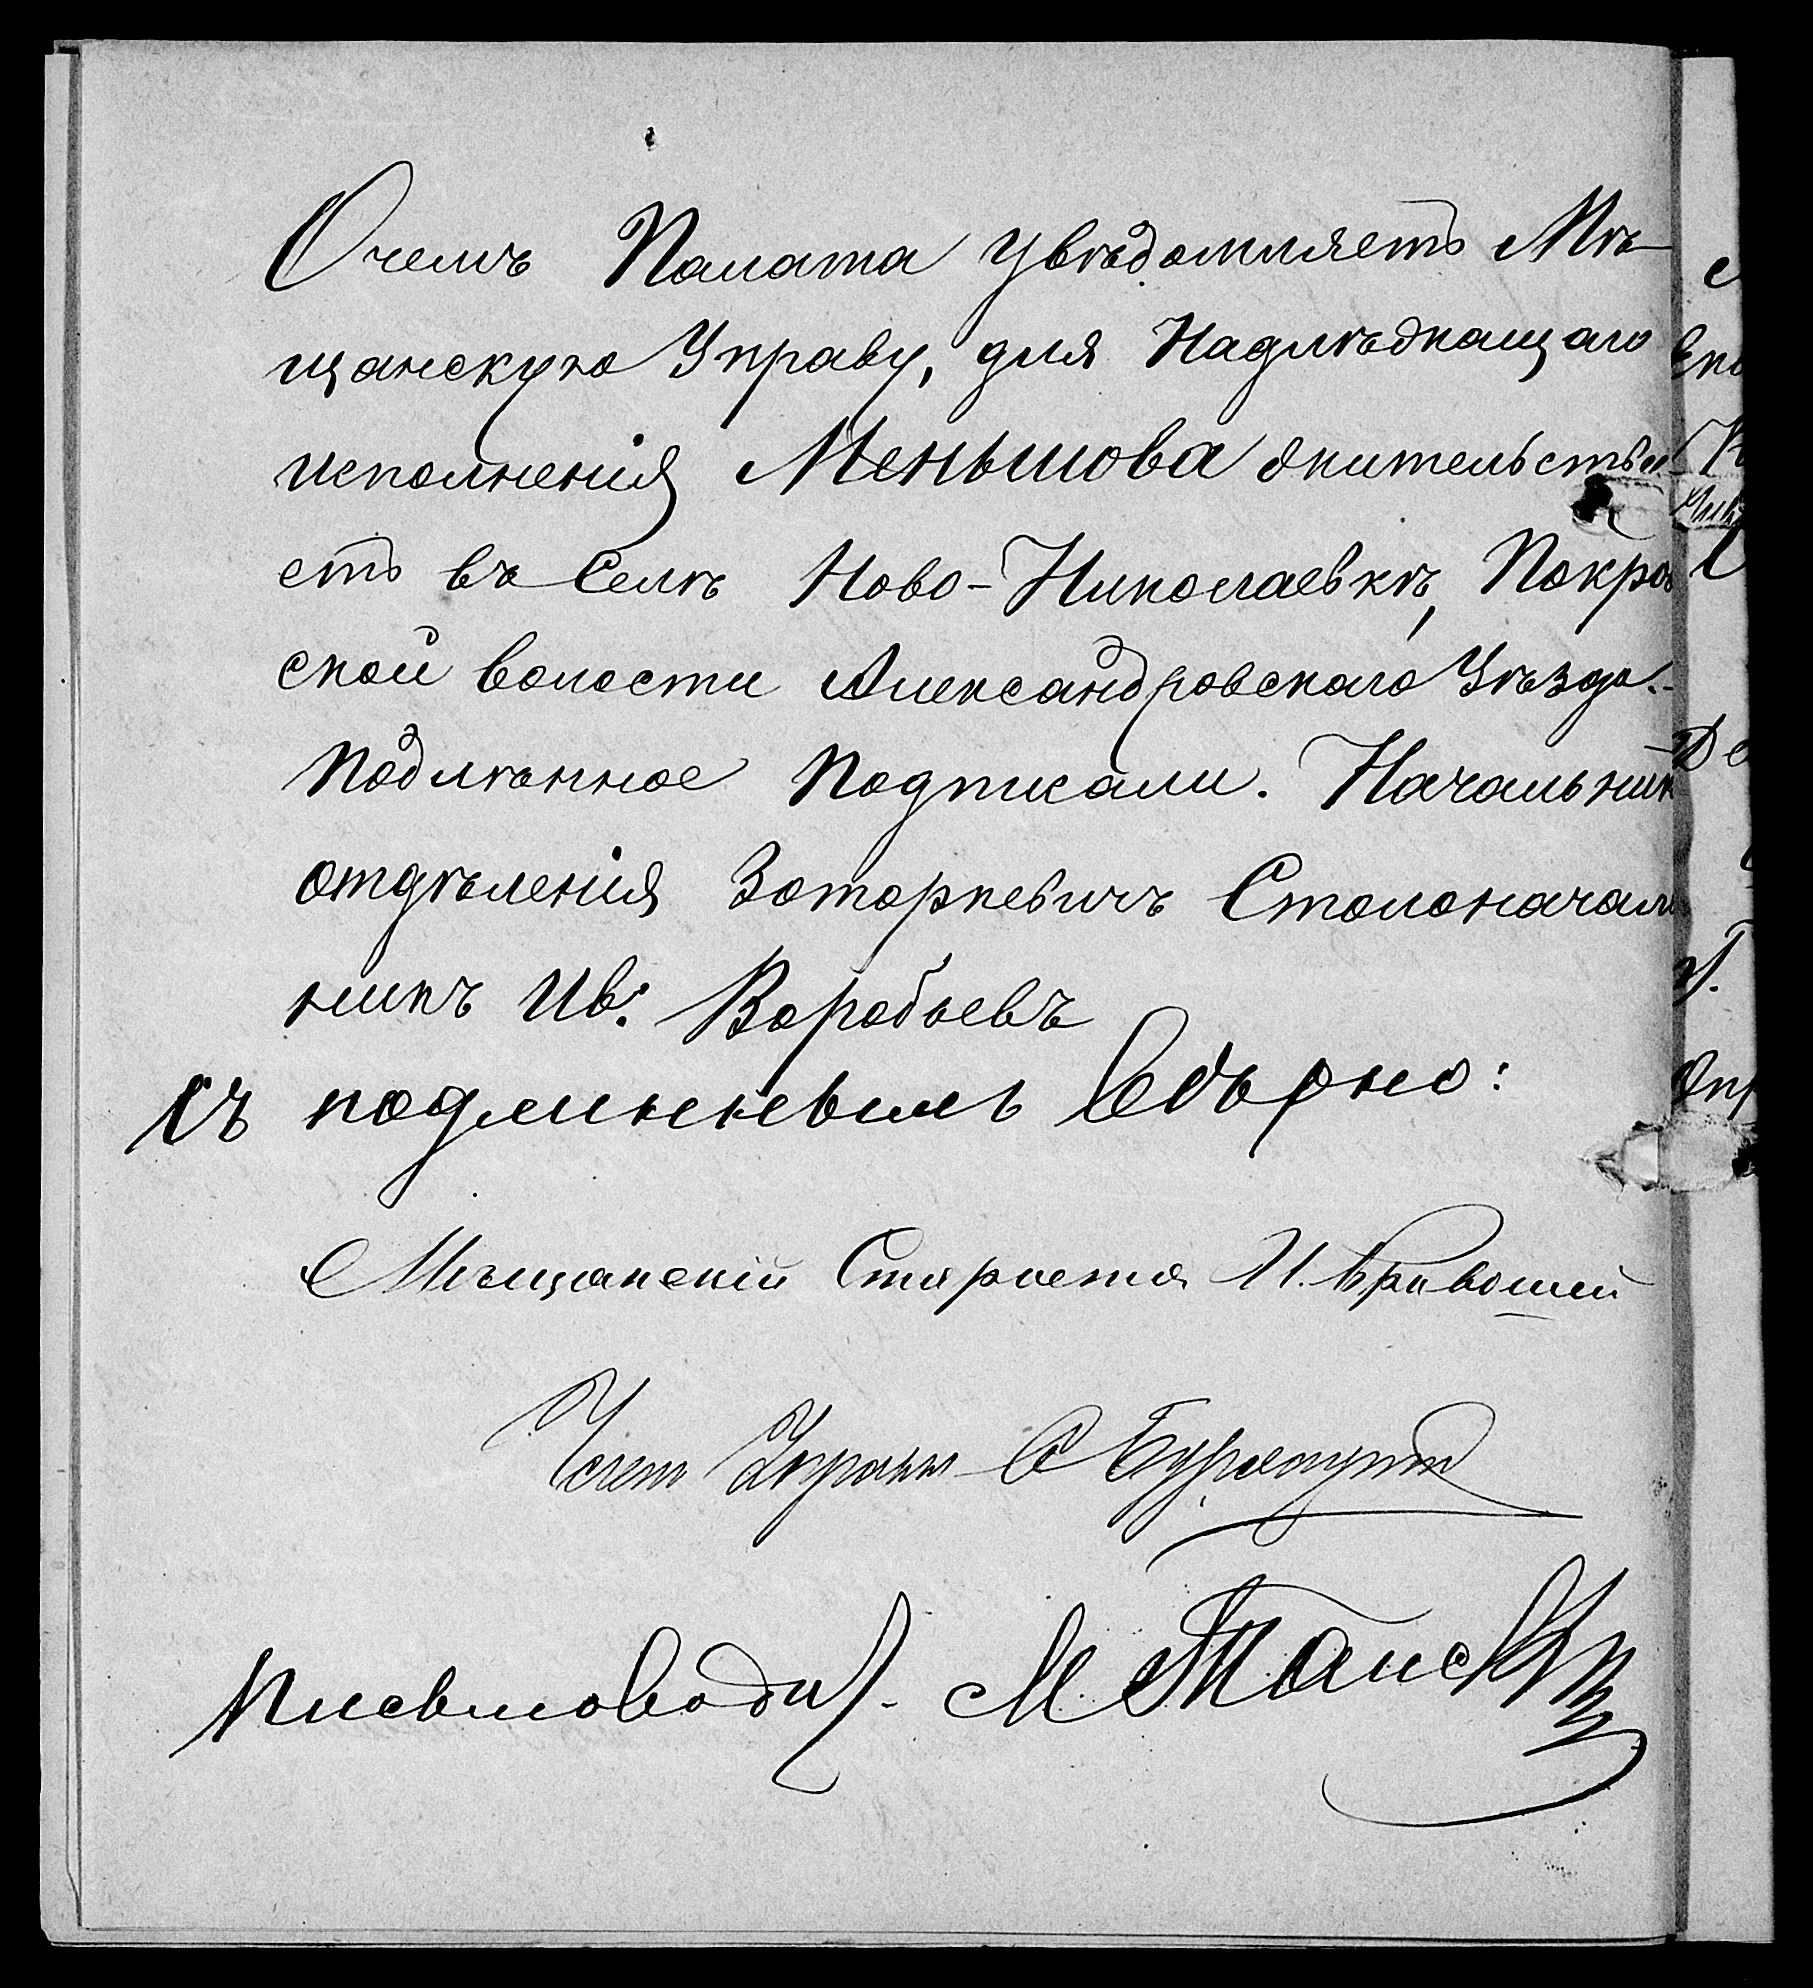 Очемъ Палата увѣдомляетъ Мѣ-
щанскую Управу, для Надлѣжащаго
исполненія Меньшова жительству-
етъ въ Селѣ Ново-Николаевкѣ, Покров
ской волости Александровскаго Уѣзда.-
Подлѣнное Подписали. Начальник
отдѣленія Заторкевичъ Столоначаль
никъ Ив: Воробьевъ
Съ подлиннымъ Вѣрно:
Мѣщанскій Староста И. Кривошей
Член Управы С
Письмоводит.- М